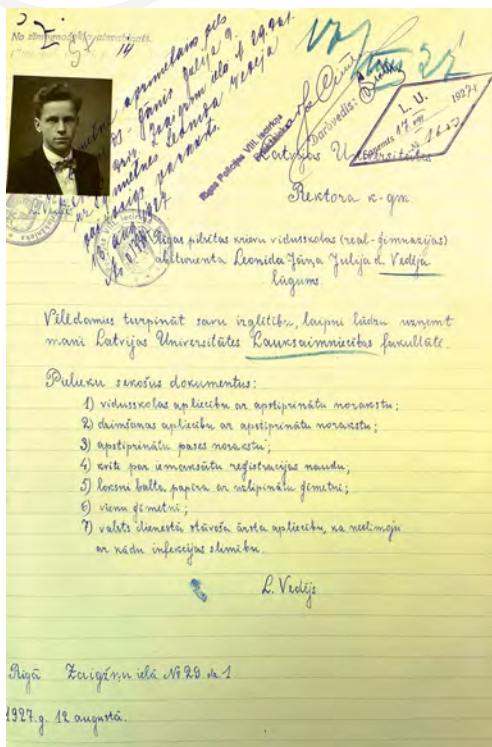 No zīmognodokļa atsvabināts.
14
Rīgas Policijas VIII. iecirkņa
Priekšnieks
Darbvedis:
L. U.
1927
Saņemts 17 VIII
№ 1627
Latvijas Universitātes
Rektora k-gm.
Rīgas pilsētas krievu vidusskolas (real-ģimnazijas)
abiturienta Leonida-Jāņa Julija d. Vedēja
lūgums.
Vēlēdamies turpināt savu izglītību, laipni lūdzu uzņemt
mani Latvijas Universitātes Lauksaimniecības fakultātē.
Pielieku sekošus dokumentus:
1) vidusskolas apliecību ar apstiprinātu norakstu;
2) dzimšanas apliecību ar apstiprinātu norakstu;
3) apstiprinātu pases norakstu;
4) kvīti par iemaksātu reģistracijas naudu;
5) loksni balta papīra ar uzlipinātu ģīmetni;
6) vienu ģīmetni;
7) valsts dienestā stāvoša ārsta apliecību, ka neslimoju
ar kādu infekcijas slimību.
L. Vedējs
Rīgā Zvaigžņu ielā № 29 dz. 1
1927. g. 12 augustā.